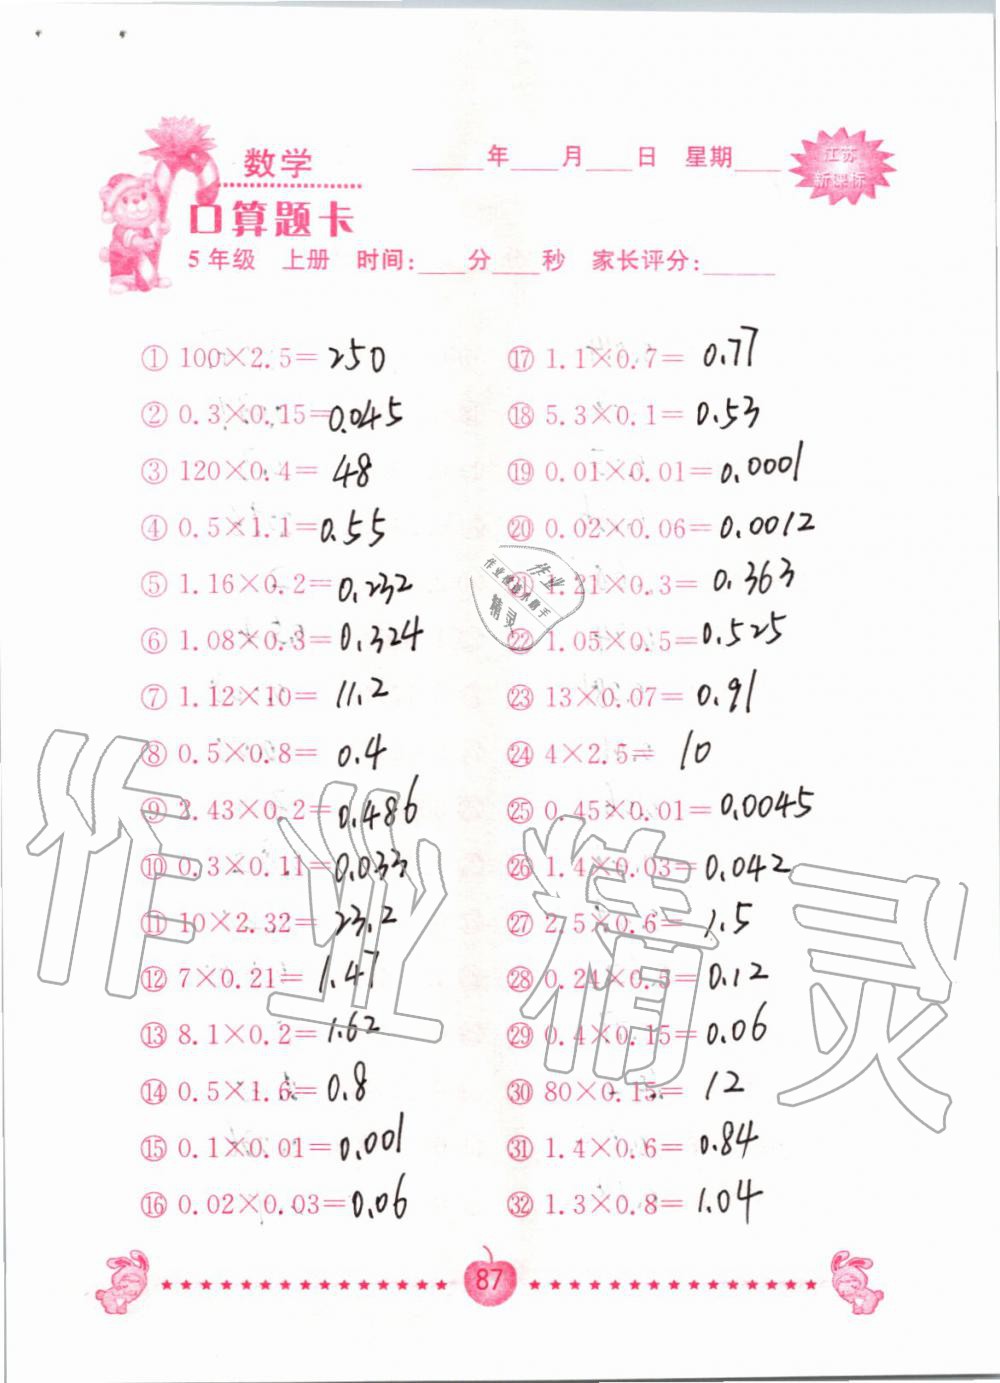 数学
____年____月____日 星期____
江苏
新课标
口算题卡
5年级 上册 时间:____分____秒 家长评分:______
① 100×2.5= 250
② 0.3×0.15= 0.045
③ 120×0.4= 48
④ 0.5×1.1= 0.55
⑤ 1.16×0.2= 0.232
⑥ 1.08×0.3= 0.324
⑦ 1.12×10= 11.2
⑧ 0.5×0.8= 0.4
⑨ 2.43×0.2= 0.486
⑩ 0.3×0.11= 0.033
⑪ 10×2.32= 23.2
⑫ 7×0.21= 1.47
⑬ 8.1×0.2= 1.62
⑭ 0.5×1.6= 0.8
⑮ 0.1×0.01= 0.001
⑯ 0.02×0.03= 0.06
⑰ 1.1×0.7= 0.77
⑱ 5.3×0.1= 0.53
⑲ 0.01×0.01= 0.0001
⑳ 0.02×0.06= 0.0012
㉑ 1.21×0.3= 0.363
㉒ 1.05×0.5= 0.525
㉓ 13×0.07= 0.91
㉔ 4×2.5= 10
㉕ 0.45×0.01= 0.0045
㉖ 1.4×0.03= 0.042
㉗ 2.5×0.6= 1.5
㉘ 0.24×0.5= 0.12
㉙ 0.4×0.15= 0.06
㉚ 80×0.15= 12
㉛ 1.4×0.6= 0.84
㉜ 1.3×0.8= 1.04
作业
精灵
作业精灵
87